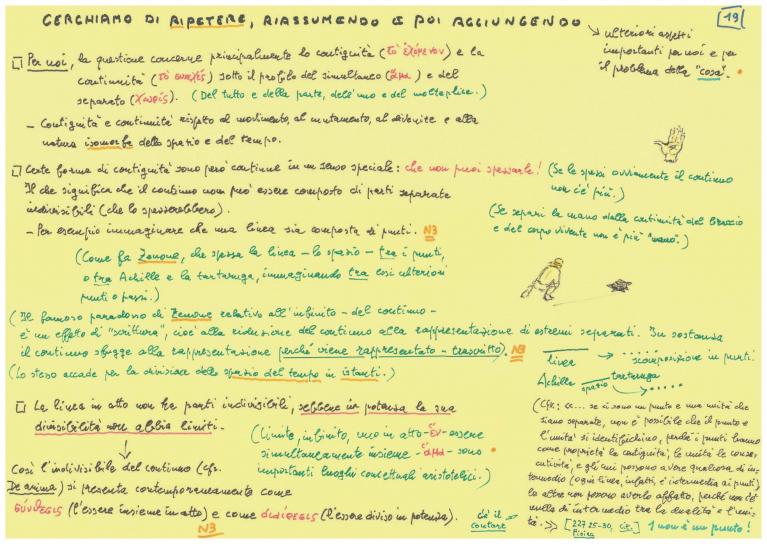 CERCHIAMO DI RIPETERE, RIASSUMENDO E POI AGGIUNGENDO
19
ulteriori aspetti
importanti per noi e per
il problema della "cosa".
Per noi, la questione concerne principalmente la contiguità (τὸ ἐχόμενον) e la
continuità (τὸ συνεχές) sotto il profilo del simultaneo (ἅμα) e del
separato (χωρίς). (Del tutto e della parte, dell'uno e del molteplice.)
- Contiguità e continuità rispetto al movimento, al mutamento, al divenire e alla
natura isomorfa dello spazio e del tempo.
Certe forme di contiguità sono però continue in un senso speciale: che non puoi spezzarle! (Se le spezzi ovviamente il continuo
non c'è più.)
Il che significa che il continuo non può essere composto di parti separate
indivisibili (che lo spezzerebbero).
(Se separi la mano dalla continuità del braccio
e del corpo vivente non è più "mano".)
- Per esempio immaginare che una linea sia composta di punti. NB
(Come fa Zenone, che spezza la linea - lo spazio - tra i punti,
o tra Achille e la tartaruga, immaginando tra essi ulteriori
punti o passi.)
(Il famoso paradosso di Zenone relativo all'infinito - del continuo -
è un effetto di "scrittura", cioè alla riduzione del continuo alla rappresentazione di estremi separati. In sostanza
il continuo sfugge alla rappresentazione perché viene rappresentato - trascritto). NB
(Lo stesso accade per la divisione dello spazio del tempo in istanti.)
linea → ....... scomposizione in punti
Achille spazio tartaruga
→ ......
La linea in atto non ha parti indivisibili, sebbene in potenza la sua
divisibilità non abbia limiti.
(Limite, infinito, uno in atto - ἕν - essere
simultaneamente insieme - ἅμα - sono
importanti luoghi concettuali aristotelici.)
Così l'indivisibile del continuo (cfr.
De anima) si presenta contemporaneamente come
σύνθεσις (l'essere insieme in atto) e come διαίρεσις (l'essere diviso in potenza).
NB
(Cfr.: «... se ci sono un punto e una unità che
siano separate, non è possibile che il punto e
l'unità si identifichino, perché i punti hanno
come proprietà la contiguità, le unità la consecutività,
e gli uni possono avere qualcosa di intermedio
(ogni linea, infatti, è intermedia ai punti)
le altre non possono averlo affatto, perché non c'è
nulla di intermedio tra la dualità e l'unità.»
[227 25-30, cit.]
Fisica
1 non è un punto!
c'è il
contare